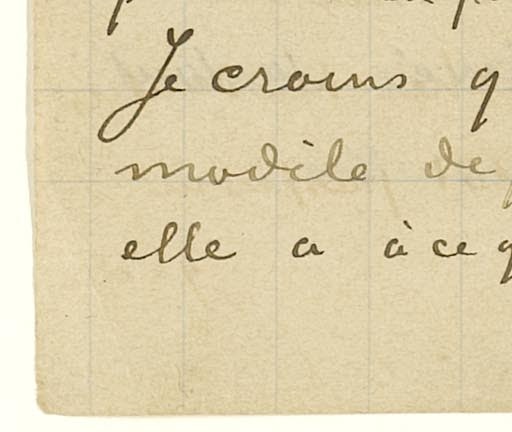 Je crains q
modile de
elle a à ce q